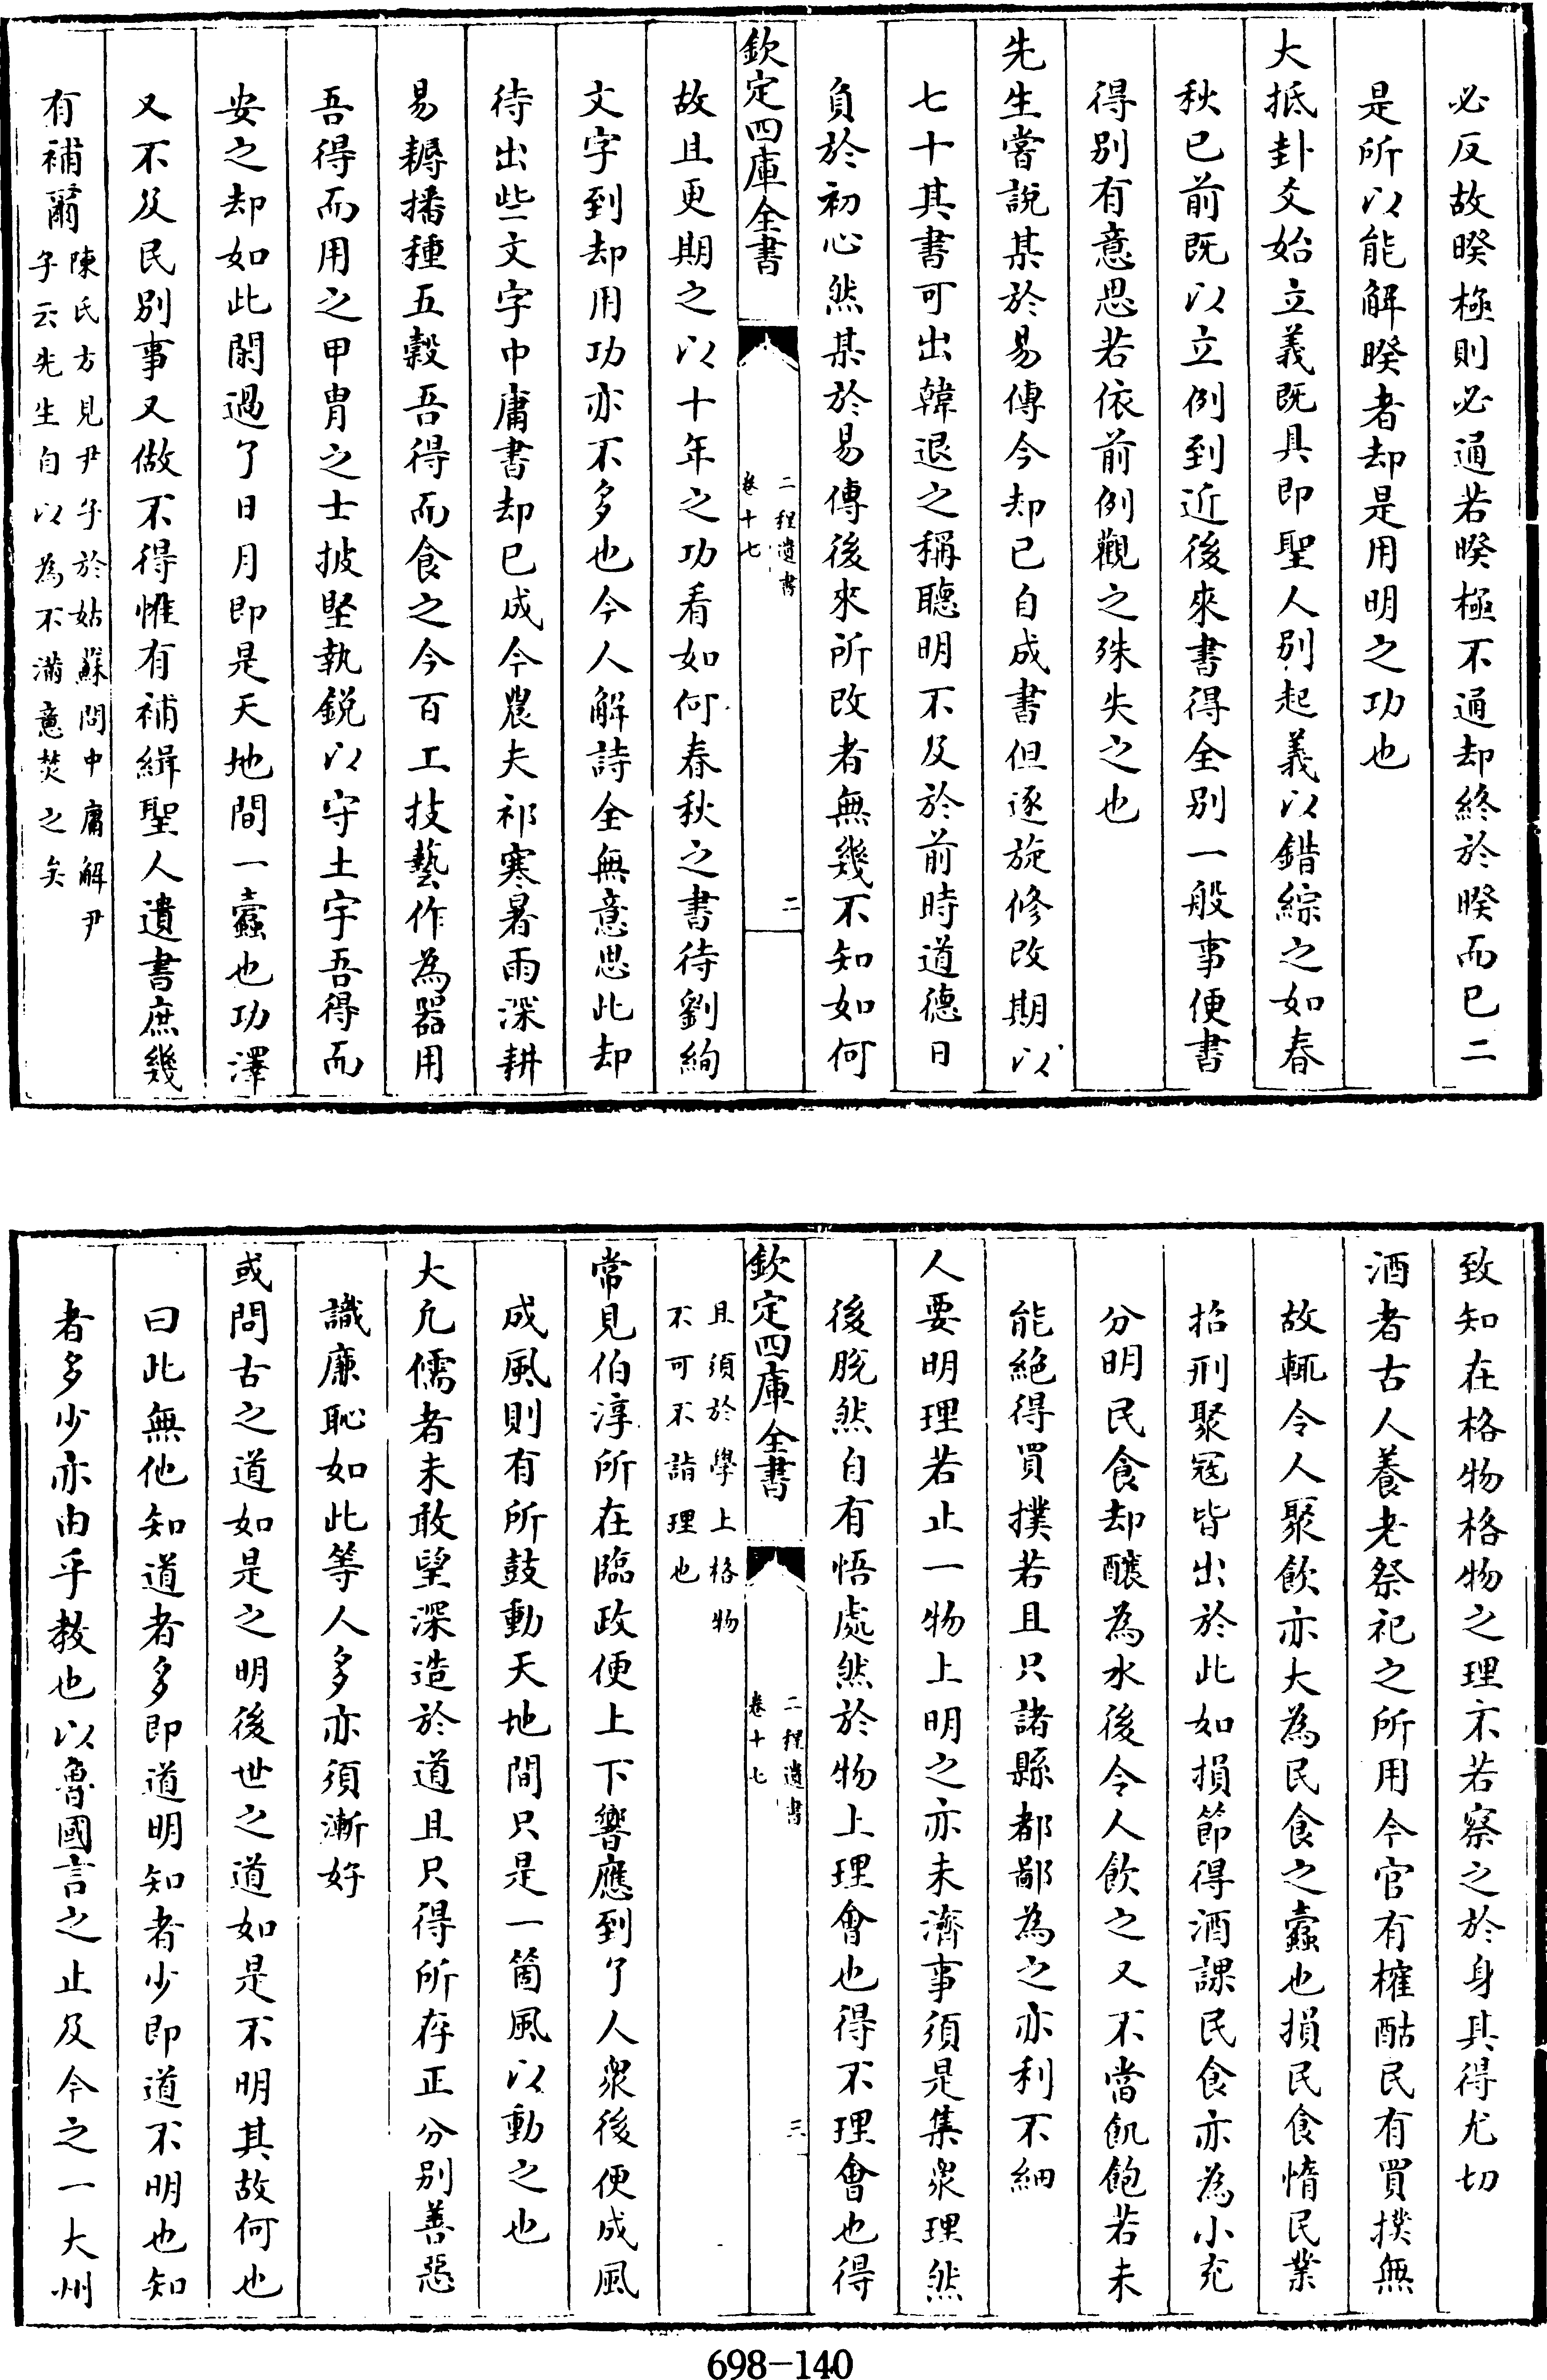 必反故暌極則必通若暌極不通却終於暌而已二
是所以能解暌者却是用明之功也
大抵卦爻始立義既具即聖人别起義以錯綜之如春
秋已前既以立例到近後來書得全别一般事便書
得别有意思若依前例觀之殊失之也
先生嘗說某於易傳今却已自成書但逐旋修改期以
七十其書可出韓退之稱聰明不及於前時道德日
負於初心然某於易傳後來所改者無幾不知如何
欽定四庫全書
二程遺書
卷十七
二
故且更期之以十年之功看如何春秋之書待劉絢
文字到却用功亦不多也今人解詩全無意思此却
待出些文字中庸書却已成今農夫祁寒暑雨深耕
易耨播種五穀吾得而食之今百工技藝作為器用
吾得而用之甲胄之士披堅執銳以守土宇吾得而
安之却如此閑過了日月即是天地間一蠧也功澤
又不及民别事又做不得惟有補緝聖人遺書庶幾
有補爾
陳氏方見尹子於姑蘇問中庸解尹
子云先生自以為不滿意焚之矣
致知在格物格物之理不若察之於身其得尤切
酒者古人養老祭祀之所用今官有榷酤民有買撲無
故輒令人聚飲亦大為民食之蠧也損民食惰民業
招刑聚冦皆出於此如損節得酒課民食亦為小充
分明民食却釀為水後令人飲之又不當飢飽若未
能絶得買撲若且只諸縣都鄙為之亦利不細
人要明理若止一物上明之亦未濟事須是集衆理然
後脫然自有悟處然於物上理會也得不理會也得
欽定四庫全書
二程遺書
卷十七
三
且須於學上格物
不可不詣理也
常見伯淳所在臨政便上下響應到了人衆後便成風
成風則有所鼓動天地間只是一箇風以動之也
大凡儒者未敢望深造於道且只得所存正分别善惡
識廉恥如此等人多亦須漸好
或問古之道如是之明後世之道如是不明其故何也
曰此無他知道者多即道明知者少即道不明也知
者多少亦由乎教也以魯國言之止及今之一大州
698-140